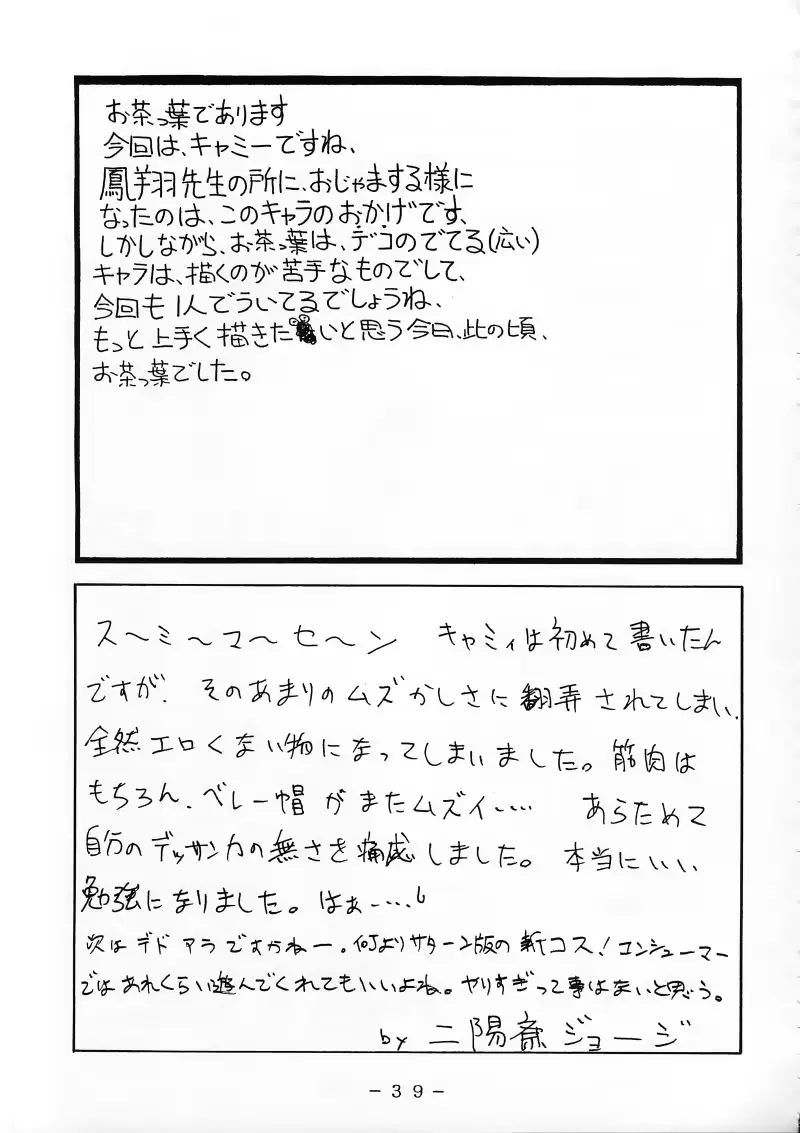 お茶っ葉であります
今回は、キャミーですね、
鳳翔羽先生の所に、おじゃまする様に
なったのは、このキャラのおかげです、
しかしながら、お茶っ葉は、デコのでてる(広い)
キャラは、描くのが苦手なものでして、
今回も1人でういてるでしょうね、
もっと上手く描きたいと思う今日、此の頃、
お茶っ葉でした。
ス〜ミ〜マ〜セ〜ン キャミィは初めて書いたん
ですが、そのあまりのムズかしさに翻弄されてしまい、
全然エロくない物になってしまいました。筋肉は
もちろん、ベレー帽がまたムズイ‥‥ あらためて
自分のデッサン力の無さを痛感しました。本当にいい
勉強になりました。はぁ‥‥。
次はデドアラですかねー。何よりサターン版の新コス!コンシューマー
ではあれくらい遊んでくれてもいいよね。ヤリすぎって事はないと思う。
by 二陽斎ジョージ
-39-